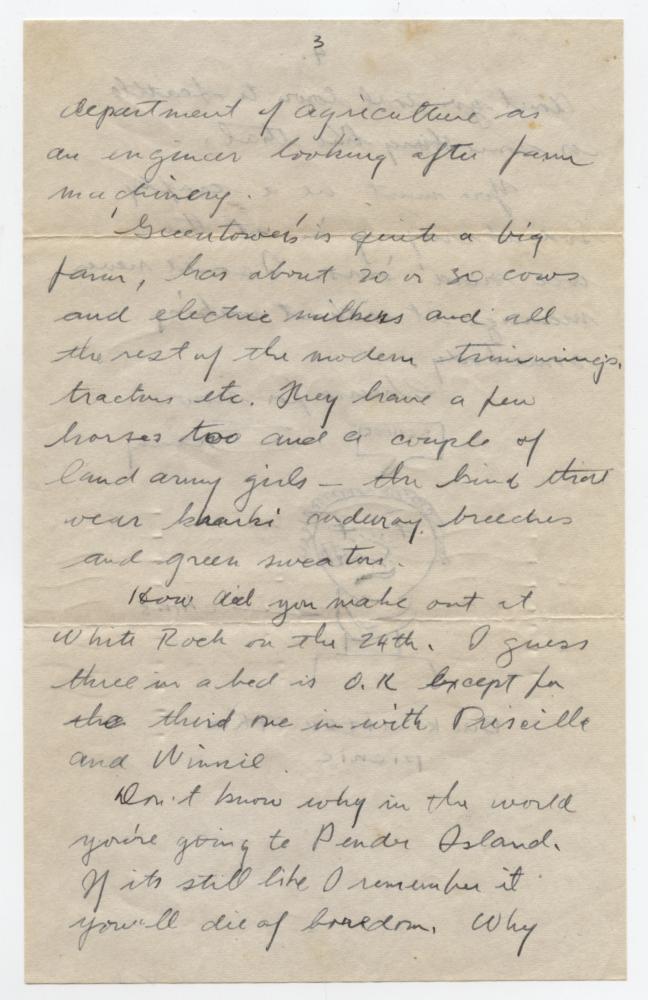 3
department of agriculture as
an engineer looking after farm
machinery.
Greentowers is quite a big
farm, has about 20 or 30 cows
and electric milkers and all
the rest of the modern trimmings,
tractors etc. They have a few
horses too and a couple of
land army girls – the kind that
wear kharki corduroy breeches
and green sweators.
How did you make out at
White Rock on the 24th. I guess
three in a bed is O.K except for
the third one in with Priscille
and Winnie.
Don't know why in the world
you're going to Pender Island.
If its still like I remember it
you'll die of boredom. Why